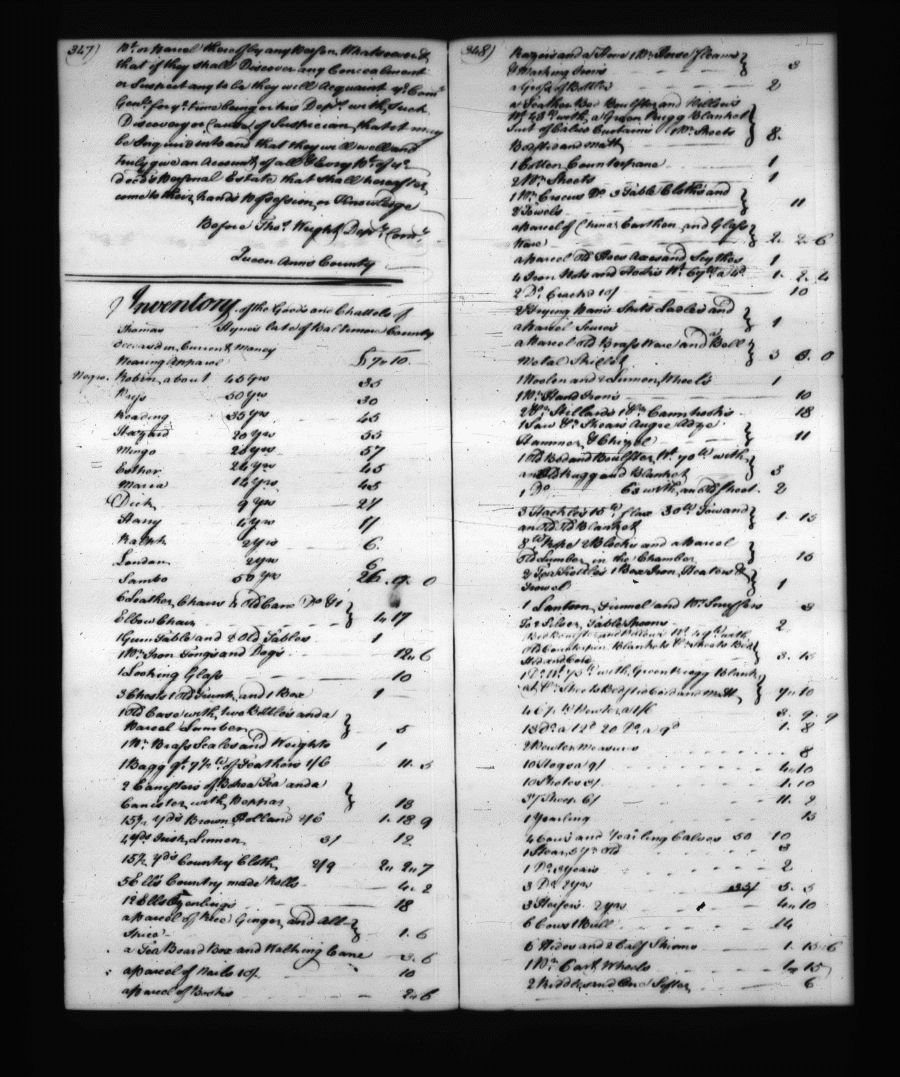 347)
Pt. or Parcel thereof by any Person Whatsoever &
that if they shall Discover any Concealment
or Suspect any to be they will Acquaint ye. Com
Genl. for ye. time being or his Depty. with Such
Discovery or Cause of Suspicion that it may
be Inquired into and that they will well and
truly give an Account of all & Every Pt. of ye.
decd's Personal Estate that shall hereafter
come to their hands Possession or Knowledge
Before Thos. Wright Depty. Com
Queen Anns County
Inventory of the Goods and Chattels of
Thomas late of Baltimore County
deceased in Current Money
Wearing Apparel £ 7 10
Negro Robin about 45 yrs 35
50 yrs 30
Reading 35 yrs 45
Hazard 20 yrs 55
Mingo 57
Esther 45
Maria 14 yrs 45
Dick 9 yrs 27
Harry 4 yrs 17
Ralph 2 yrs 6
London 2 yrs 6
Sambo 50 yrs 26. 9. 0
6 Leather Chairs 4 Old Cane Do &1
Elbow Chair } 4 17
1 Gum Table and 2 Old Tables 1
1 Pr. Iron Tongs and Dogs 12 6
1 Looking Glass 10
3 Chests 1 Old Trunk and 1 Box 1
1 Old Case with two Bottles and a
Parcel Lumber } 5
1 Pr. Brass Scales and Weights 1
1 Bagg of Feathers 1/6 11. 5
2 Canisters of Bohea Tea and a
Canister with Pepper } 18
15½ yds Brown Holland 2/6 1. 18 9
4 yds Irish Linnen 3/ 12
15½ yds Country Cloth 2/9 2 2 7
5 Ells Country made 4. 2
12 Ells Ozenbrigs 18
a Parcel of Rice Ginger and All-
Spice } 1. 6
a Tea Board Box and Walking Cane 3. 6
a Parcel of Nails 10/ 10
a Parcel of Books 2 6
348)
Razors and a Hone 1 Pr. Horse Fleams
& Marking Irons } 3
a Groce of Bottles 2
a Feather Bed Boulster and Pillows
Wt. 48 lb with a Green Rugg Blanket
Suit of Calico Curtains 1 Pr. Sheets
Bedstead and Matt } 8.
1 Cotton Counterpane 1
2 Pr. Sheets 1
1 Pr. Crocus Do. 3 Table Cloths and
2 Towels } 11
a Parcel of China Earthen and Glass
Ware } 2. 2. 6
a Parcel Old Hoes Axes and Scythes 1
4 Iron Pots and Hooks Wt. 67 lb a 4d. 1. 2. 4
2 Do. Crackd 10/ 10
2 Frying Pans Spits Ladles and
a Parcel } 1
a Parcel old Brass Ware and Bell
Metal Skillet } 3 8. 0
1 Woolen and 2 Linnen Wheels 1
1 Pr. Hand Irons 10
2 Pr. Stillards 1 Pr. 18
1 Saw Pr. Shears Augre Adze
Hammer & Chizel } 11
1 Old Bed and Boulster Wt. 70 lb with
an Old Rugg and Blanket } 3
1 Do 63 with an Old Sheet 2
3 Hackles 15 lb flax 30 lb Tow and
an Old Old Blanket } 1. 15
8 lb Rope 2 Blocks and a Parcel
Old Lumber in the Chamber } 15
2 Tea Kettles 1 Box Iron Heaters &
Trowel } 1
1 Lantern Funnel and Pr. Snuffers 3
Silver Table Spoons 2
Bed Boulster and Pillows Wt. 49 lb with
Old Counterpin Blankets Pr. Sheets Bed
Stead and Cord } 3. 15
1 Do. Wt. 75 lb with Green Rugg Blank
et Pr. Sheets Bedstead Cord and Matt } 7 10
46½ lb Pewter a 1/6 3. 9. 9
13 Do. a 12d 20 Do. a 9d 1. 8
2 Pewter Measures 8
10 Hogs a 9/ 4 10
10 Shotes 3/ 1. 10
37 Sheep 6/ 11. 2
1 Yearling 15
4 Cows and Yearling Calves 50 10
1 Steer 5 yr Old 3
1 Do. 3 years 2
3 Do. 2 yrs 35/ 5. 5
3 Heifers 2 yrs 4 10
6 Cows 1 Bull 14
6 Hides and 2 Calf Skinns 1. 15 6
1 Pr. Cart Wheels 1 15
2 Riddles and One Sifter 6